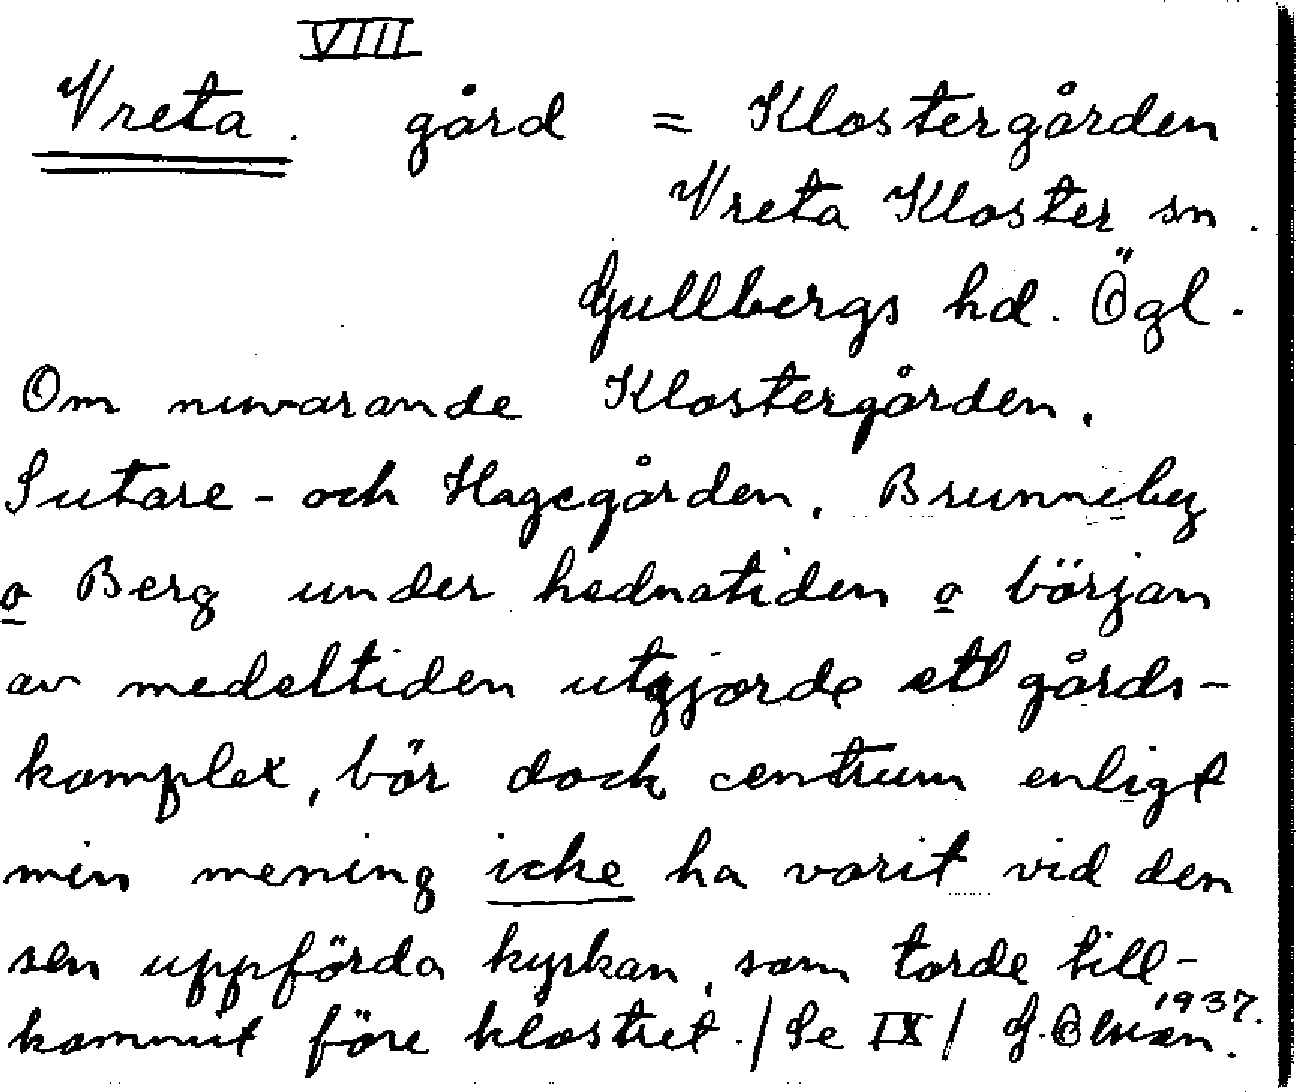 VIII
Vreta. gård = Klostergården
Vreta Kloster sn.
Gullbergs hd. Ögl.
Om nuvarande Klostergården,
Sutare- och Hagegården, Brunneby
o Berg under hednatiden o början
av medeltiden utgjorde ett gårds-
komplex, bör dock centrum enligt
min mening icke ha varit vid den
sen uppförda kyrkan, som torde till-
kommit före klostret. / Se IX /
1937.